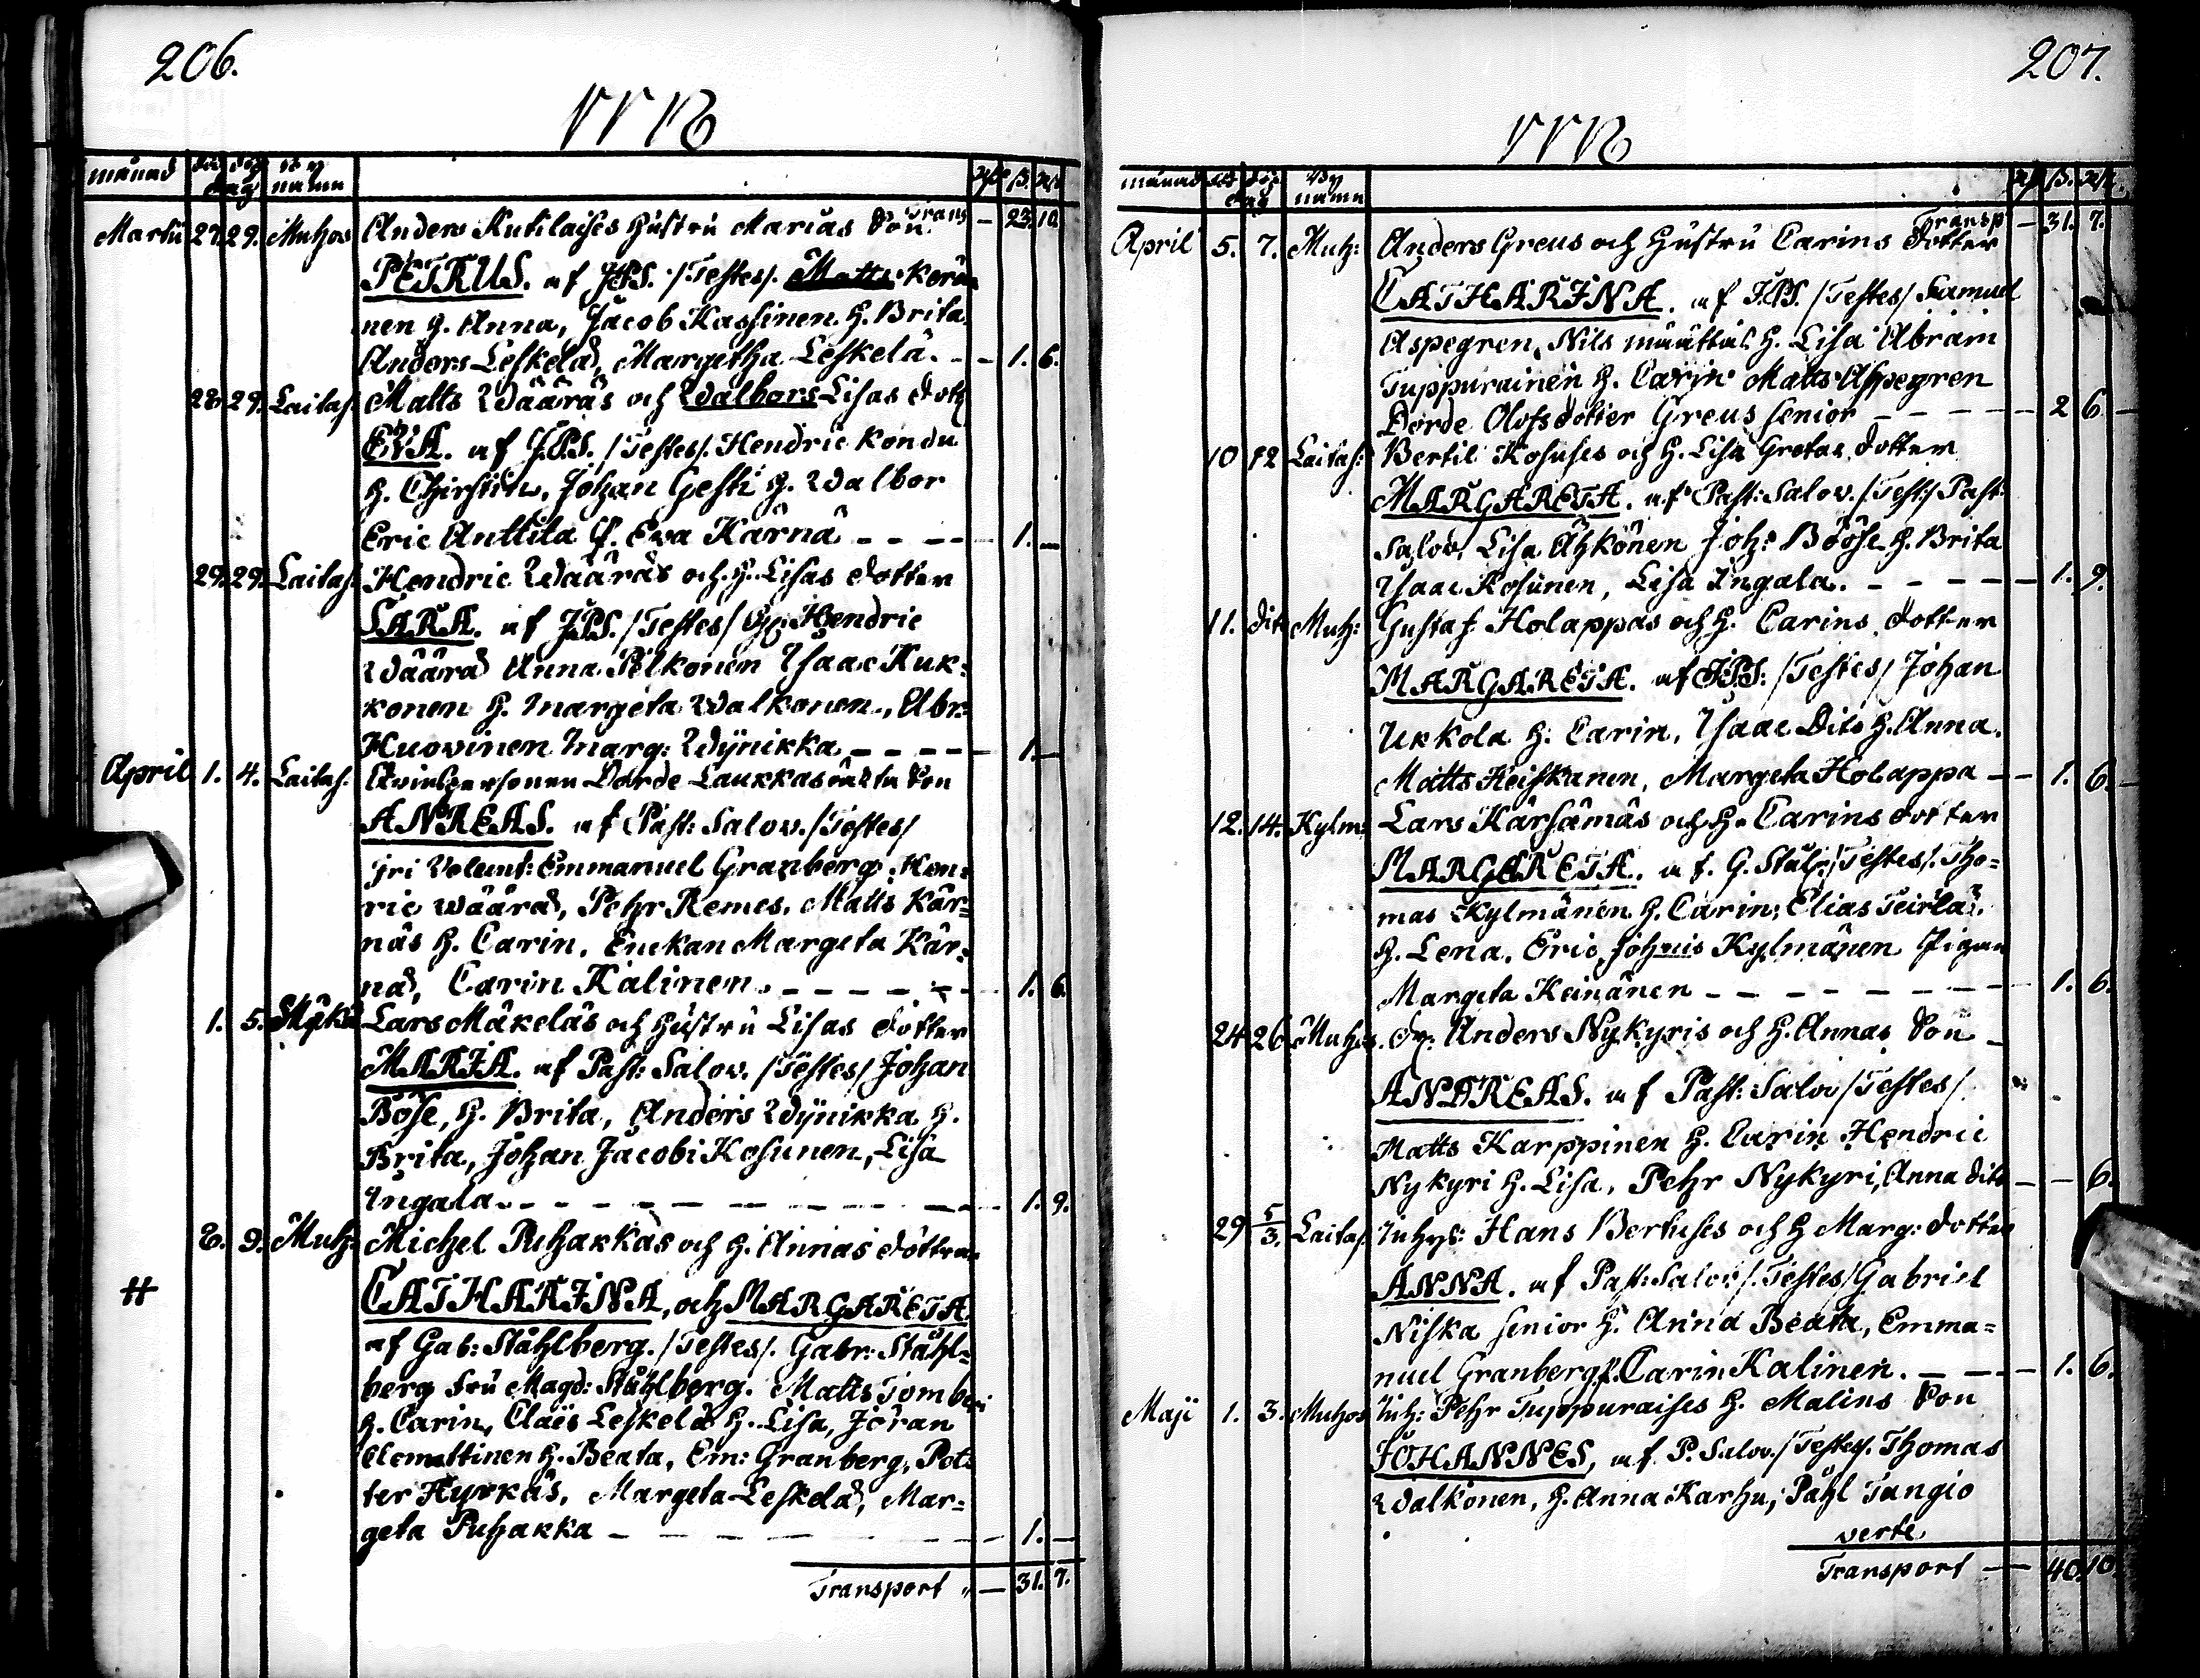 206.
1778
månad född dag by namn
Martii 27. 29. Muhos Anders Rutilaises Hustru Marias Son. Transp — 23. 10.
PETRUS. af J.P.S. /Testes/. Matts Korä
nen h. Anna, Jacob Kassinen h. Brita
Anders Leskelä, Margetha Leskelä. - - 1. 6.
28. 29. Laitas. Matts Wääräs och Walbors Lisas dott
EVA. af J.P.S. /Testes/. Hendric Kondu
h. Chirstin, Johan Gesti h. Walbor
Eric Anttila P. Eva Kärnä - - - - 1. —
29. 29. Laitas. Hendric Wääräs och h. Lisas dotter
SARA. af J.P.S. /Testes/ Hendric
Wäärä Anna Pelkonen Isaac Kuk-
konen h. Margeta Walkonen, Abr:
Huovinen Marg: Wÿnikka - - - - 1. —
April 1. 4. Laitas. Qvinspersonen Dorde Laukkas oäkta Son
ANREAS. af Past: Salov. /Testes/
Volunt: Emmanuel Granberg, Hen-
ric Wäärä, Pehr Remes, Matts Kär-
näs h. Carin, Enckan Margeta Kär-
nä, Carin Kalinen. - - - - - 1. 6.
1. 5. Lars Mäkeläs och Hustru Lisas dotter
MARIA. af Past: Salov. /Testes/ Johan
Böse, h. Brita, Anders Wÿnikka h.
Brita, Johan Jacobi Kosunen, Lisa
Ingala. - - - - - - - - 1. 9.
8. 9. Muh: Michel Puhakkas och h. Annas döttrar
# CATHARINA, och MARGARETA
af Gab: Ståhlberg. /Testes/. Gabr: Ståhl-
berg Fru Magd: Ståhlberg. Matts Tomberi
h. Carin, Claës Leskelä h. Lisa, Jöran
Clemettinen h. Beata, Em: Granberg, Pet-
ter Hyrkäs, Margeta Leskelä, Mar-
geta Puhakka — — — — 1. —
Transport " — 31. 7.
207.
1778
månad född dag by namn
Transp — 31. 7.
April 5. 7. Muh: Anders Greus och Hustru Carins Dotter
CATHARINA. af J.P.S. /Testes/ Samuel
Aspegren, Nils Määttä h. Lisa Abram
Tuppurainen h. Carin Matts Aspegren
Dorde Olofsdotter Greus senior - - - - - 2. 6. —
10 12 Laitas: Bertil Kosuses och h. Lisa Gretas dotter
MARGARETA. af Past: Salov. /Test:/ Past:
Salov. Lisa Ähkönen Joh: Bööse h. Brita
Isaac Kosunen, Lisa Ingala. - - - - - 1. 9.
11. dito Muh: Gustaf Holappas och h. Carins dotter
MARGARETA. af J.P.S: /Testes/ Johan
Ukkola h. Carin, Isaac Dito h. Anna.
Matts Heiskanen, Margeta Holappa - - 1. 6.
12. 14. Kylm: Lars Kärsämäs och h. Carins dotter
MARGARETA. af. G. Stålb: /Testes/. Tho-
mas Kylmänen h. Carin, Elias Teirilä.
h. Lena, Eric Johannis Kylmänen Pigan
Margeta Keinänen - - - - - - - - 1. 6.
24 26 Muhos. Anders Nykyris och h. Annas Son -
ANDREAS. af Past: Salov /Testes/.
Matts Karppinen h. Carin Hendric
Nykyri h. Lisa, Pehr Nykyri, Anna dito — — 6.
29 5/3. Laitas. Inhys: Hans Bertuses och h Marg: dotter
ANNA. af Past: Salov /. Testes/ Gabriel
Niska senior h. Anna Beata, Emma-
nuel Granberg, P. Carin Kalinen. - - - 1. 6.
Maji 1. 3. Muhos Inh: Pehr Tuppuraises h. Malins Son
JOHANNES, af P. Salov. /Testes/. Thomas
Walkonen, h. Anna Karhu, Påhl Tangio
verte
Transport — 40. 10.